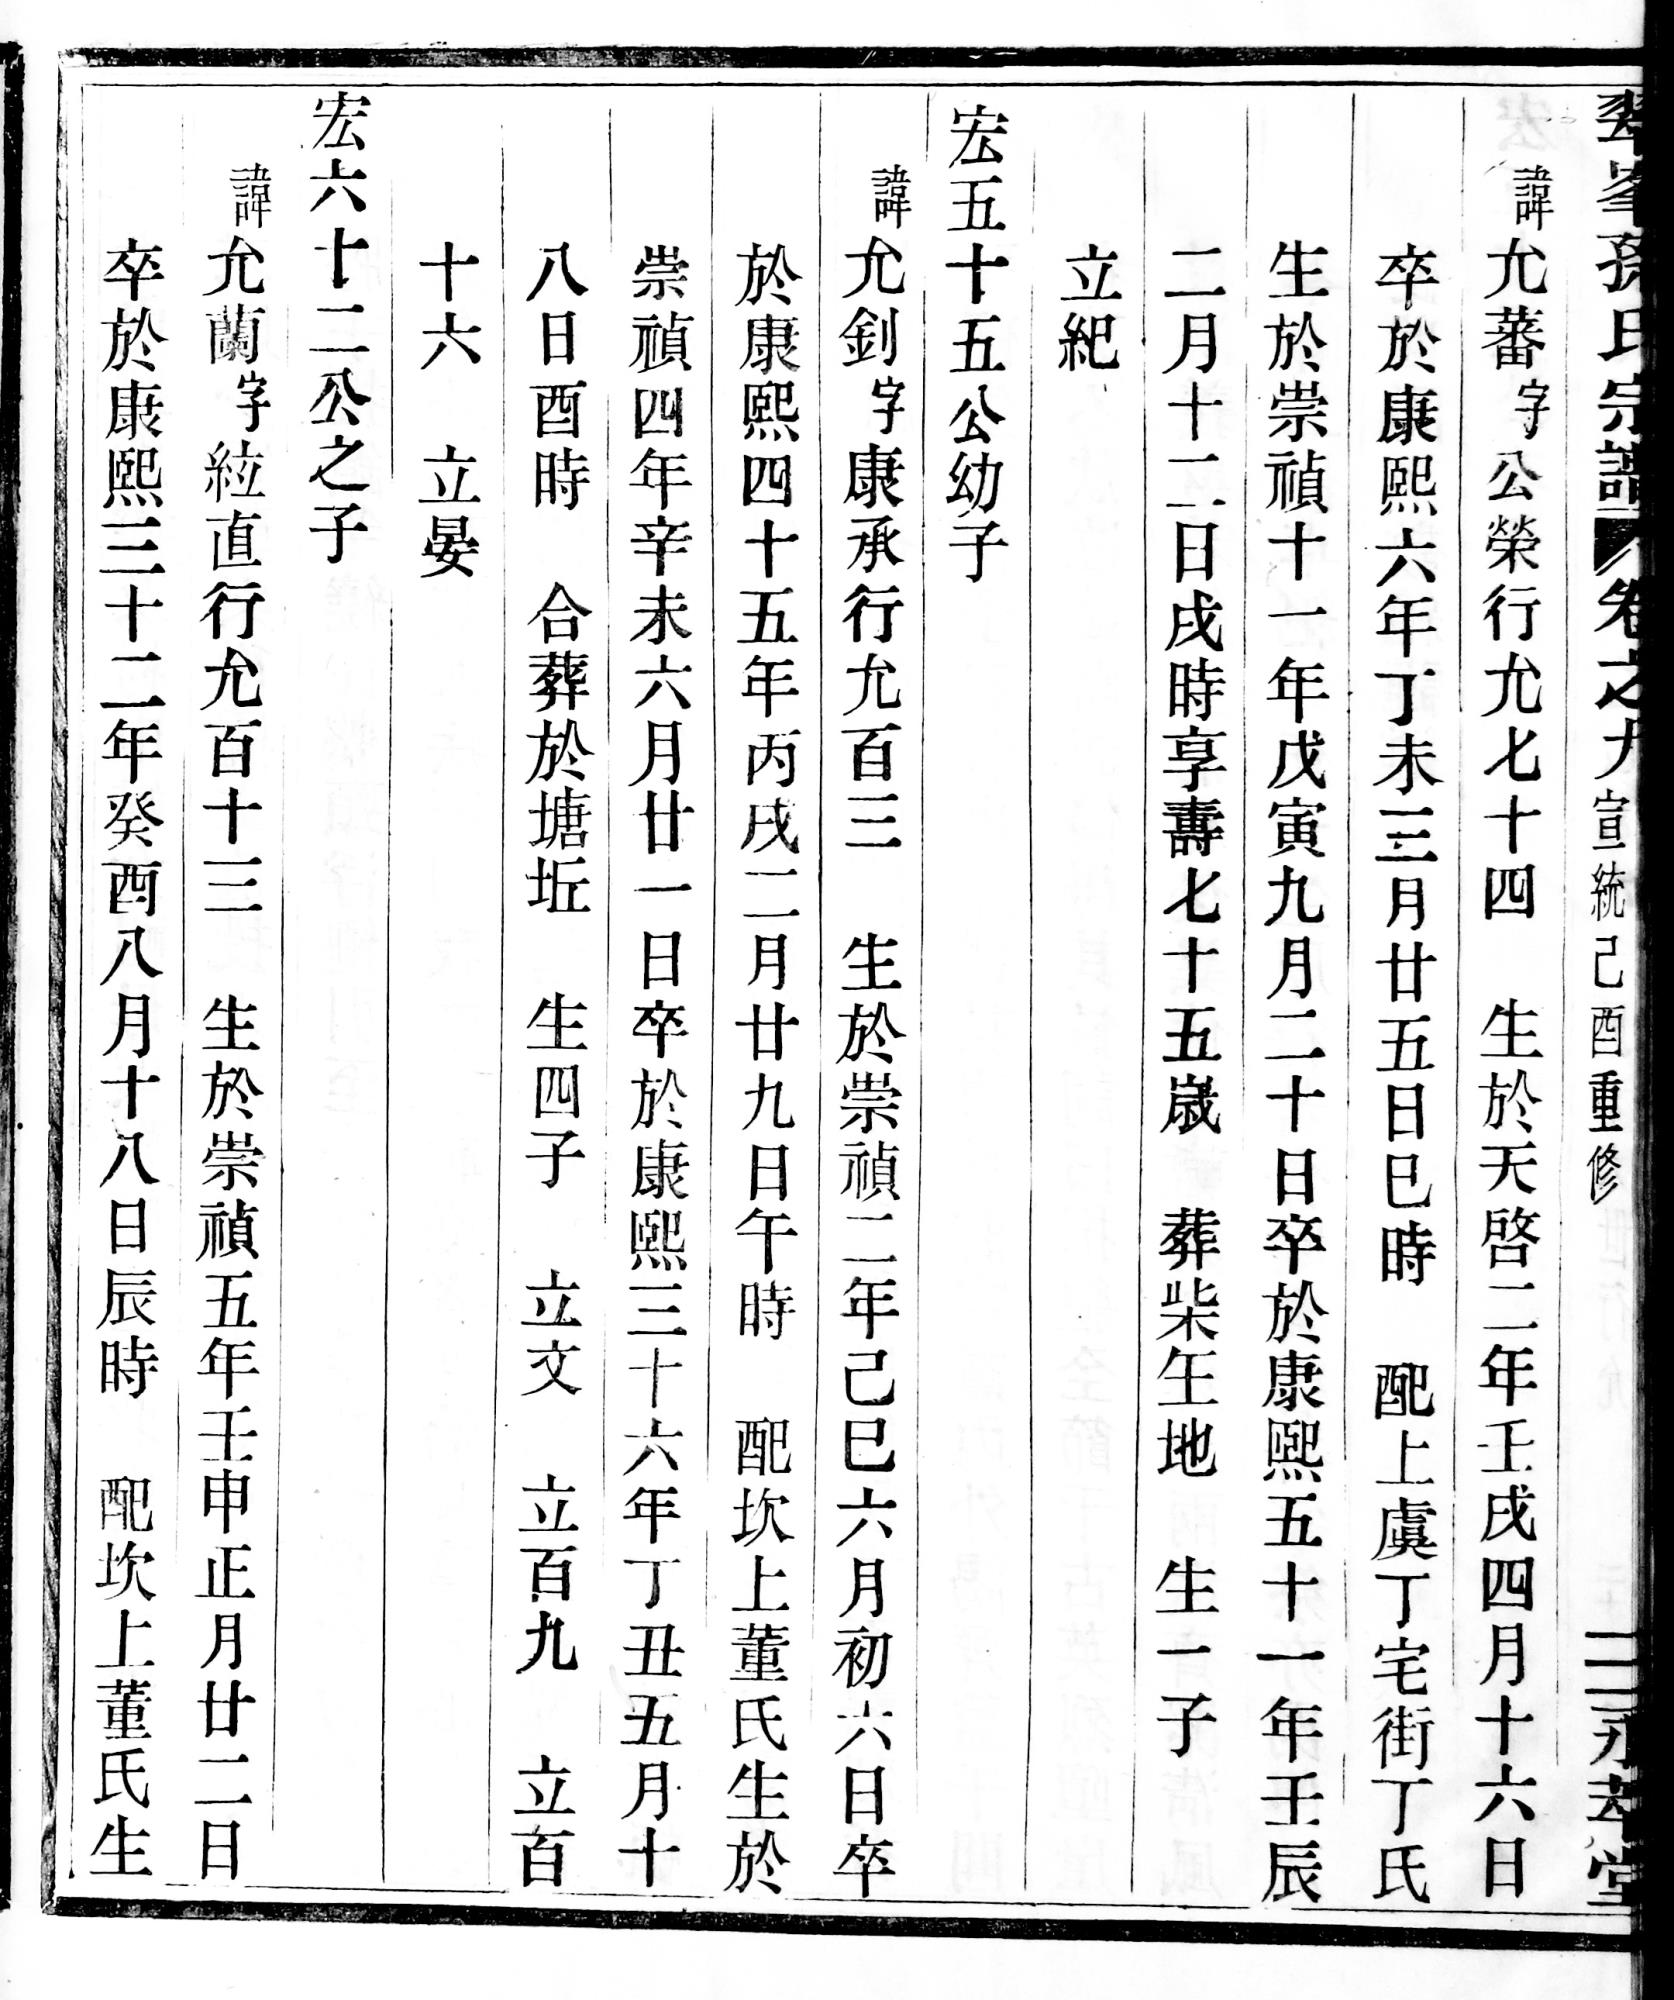 翠峯孫氏宗譜 卷之九 宣統己酉重修 二 永孝堂
諱允蕃字公榮行允七十四 生於天啓二年壬戌四月十六日
卒於康熙六年丁未三月廿五日巳時 配上虞丁宅街丁氏
生於崇禎十一年戊寅九月二十日卒於康熙五十一年壬辰
二月十二日戌時享壽七十五歲 葬柴𡉀地 生一子
立紀
宏五十五公幼子
諱允釗字康承行允百三 生於崇禎二年己巳六月初六日卒
於康熙四十五年丙戌二月廿九日午時 配坎上董氏生於
崇禎四年辛未六月廿一日卒於康熙三十六年丁丑五月十
八日酉時 合葬於塘坵 生四子 立文 立百九 立百
十六 立晏
宏六十二公之子
諱允蘭字紘直行允百十三 生於崇禎五年壬申正月廿二日
卒於康熙三十二年癸酉八月十八日辰時 配坎上董氏生